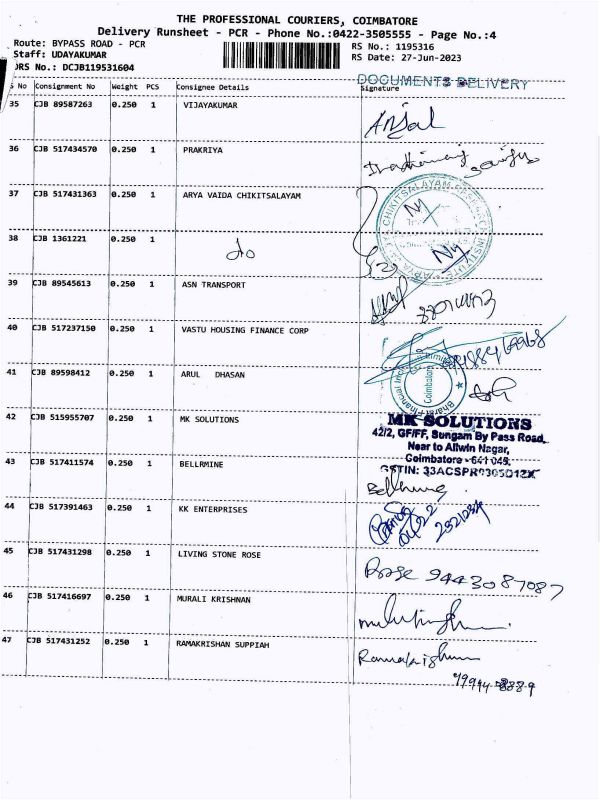 THE PROFESSIONAL COURIERS, COIMBATORE
Delivery Runsheet - PCR - Phone No.:0422-3505555 - Page No.:4
Route: BYPASS ROAD - PCR
RS No.: 1195316
Staff: UDAYAKUMAR
RS Date: 27-Jun-2023
DRS No.: DCJB119531604
DOCUMENTS DELIVERY
S No Consignment No Weight PCS Consignee Details Signature
35 CJB 89587263 0.250 1 VIJAYAKUMAR
36 CJB 517434570 0.250 1 PRAKRIYA
37 CJB 517431363 0.250 1 ARYA VAIDA CHIKITSALAYAM
38 CJB 1361221 0.250 1 do
39 CJB 89545613 0.250 1 ASN TRANSPORT
40 CJB 517237150 0.250 1 VASTU HOUSING FINANCE CORP
41 CJB 89598412 0.250 1 ARUL DHASAN
Coimbatore
42 CJB 515955707 0.250 1 MK SOLUTIONS
MK SOLUTIONS
42/2, GF/FF, Sungam By Pass Road,
Near to Allwin Nagar,
Coimbatore - 641 045.
43 CJB 517411574 0.250 1 BELLRMINE
44 CJB 517391463 0.250 1 KK ENTERPRISES
45 CJB 517431298 0.250 1 LIVING STONE ROSE
Rose 9443087087
46 CJB 517416697 0.250 1 MURALI KRISHNAN
47 CJB 517431252 0.250 1 RAMAKRISHAN SUPPIAH